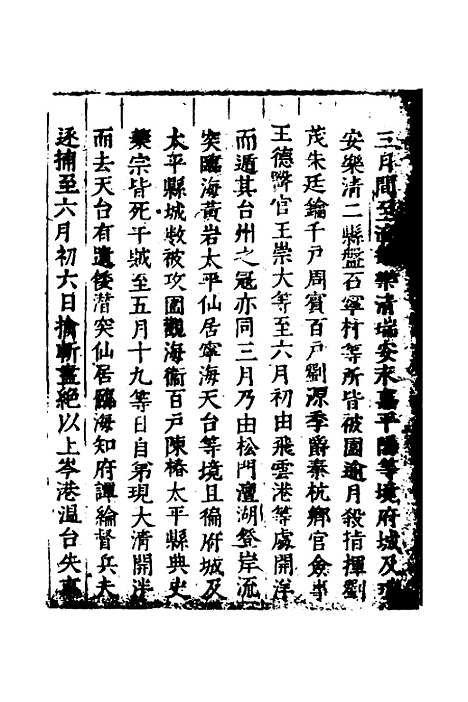 三月間至樂清瑞安永嘉平陽等境府城及瑞
安樂清二縣盤石寧村等所皆破圍逾月殺指揮劉
茂朱廷鑰千戸周賓百戸劉源季爵秦杭鄉官僉事
王德醫官王崇大等至六月初由飛雲港等處開洋
而遁其台州之冦亦同三月乃由松門澶湖登岸流
突臨海黃岩太平仙居寧海天台等境且徧府城及
太平縣城數被攻圍觀海衞百戸陳椿太平縣典史
葉宗皆死于城至五月十九等日自苐現大清開洋
而去天台有遺倭潛突仙居臨海知府譚綸督兵夫
逐捕至六月初六日擒斬盡絕以上岑港温台失事